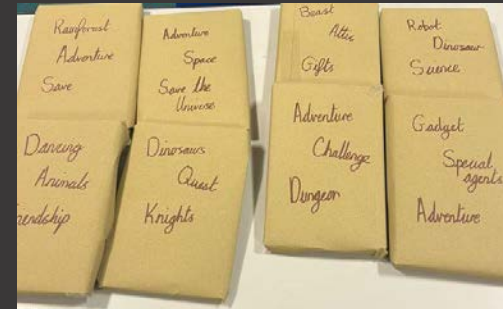 Rainforest
Adventure
Save
Adventure
Space
Save the
Universe
Beast
Attic
Gifts
Robot
Dinosaur
Science
Dancing
Animals
Friendship
Dinosaurs
Quest
Knights
Adventure
Challenge
Dungeon
Gadget
Special
agents
Adventure